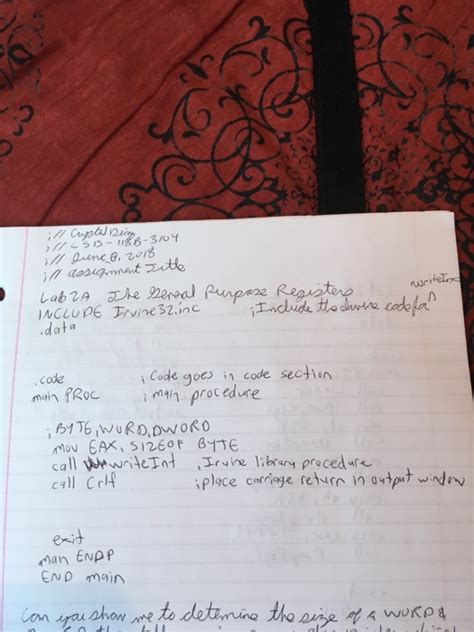 ;//
;// CSIS-118B-3104
;// June 8, 2018
;// assignment Title
Lab2A The General Purpose Registers
INCLUDE Irvine32.inc ; Include the Irvine code for writeInt
.data
.code ; Code goes in code section
main PROC ; main procedure
; BYTE, WORD, DWORD
mov EAX, SIZEOF BYTE
call writeInt ; Irvine library procedure
call Crlf ; place carriage return in output window
exit
man ENDP
END main
Can you show me to determine the size of a WORD &